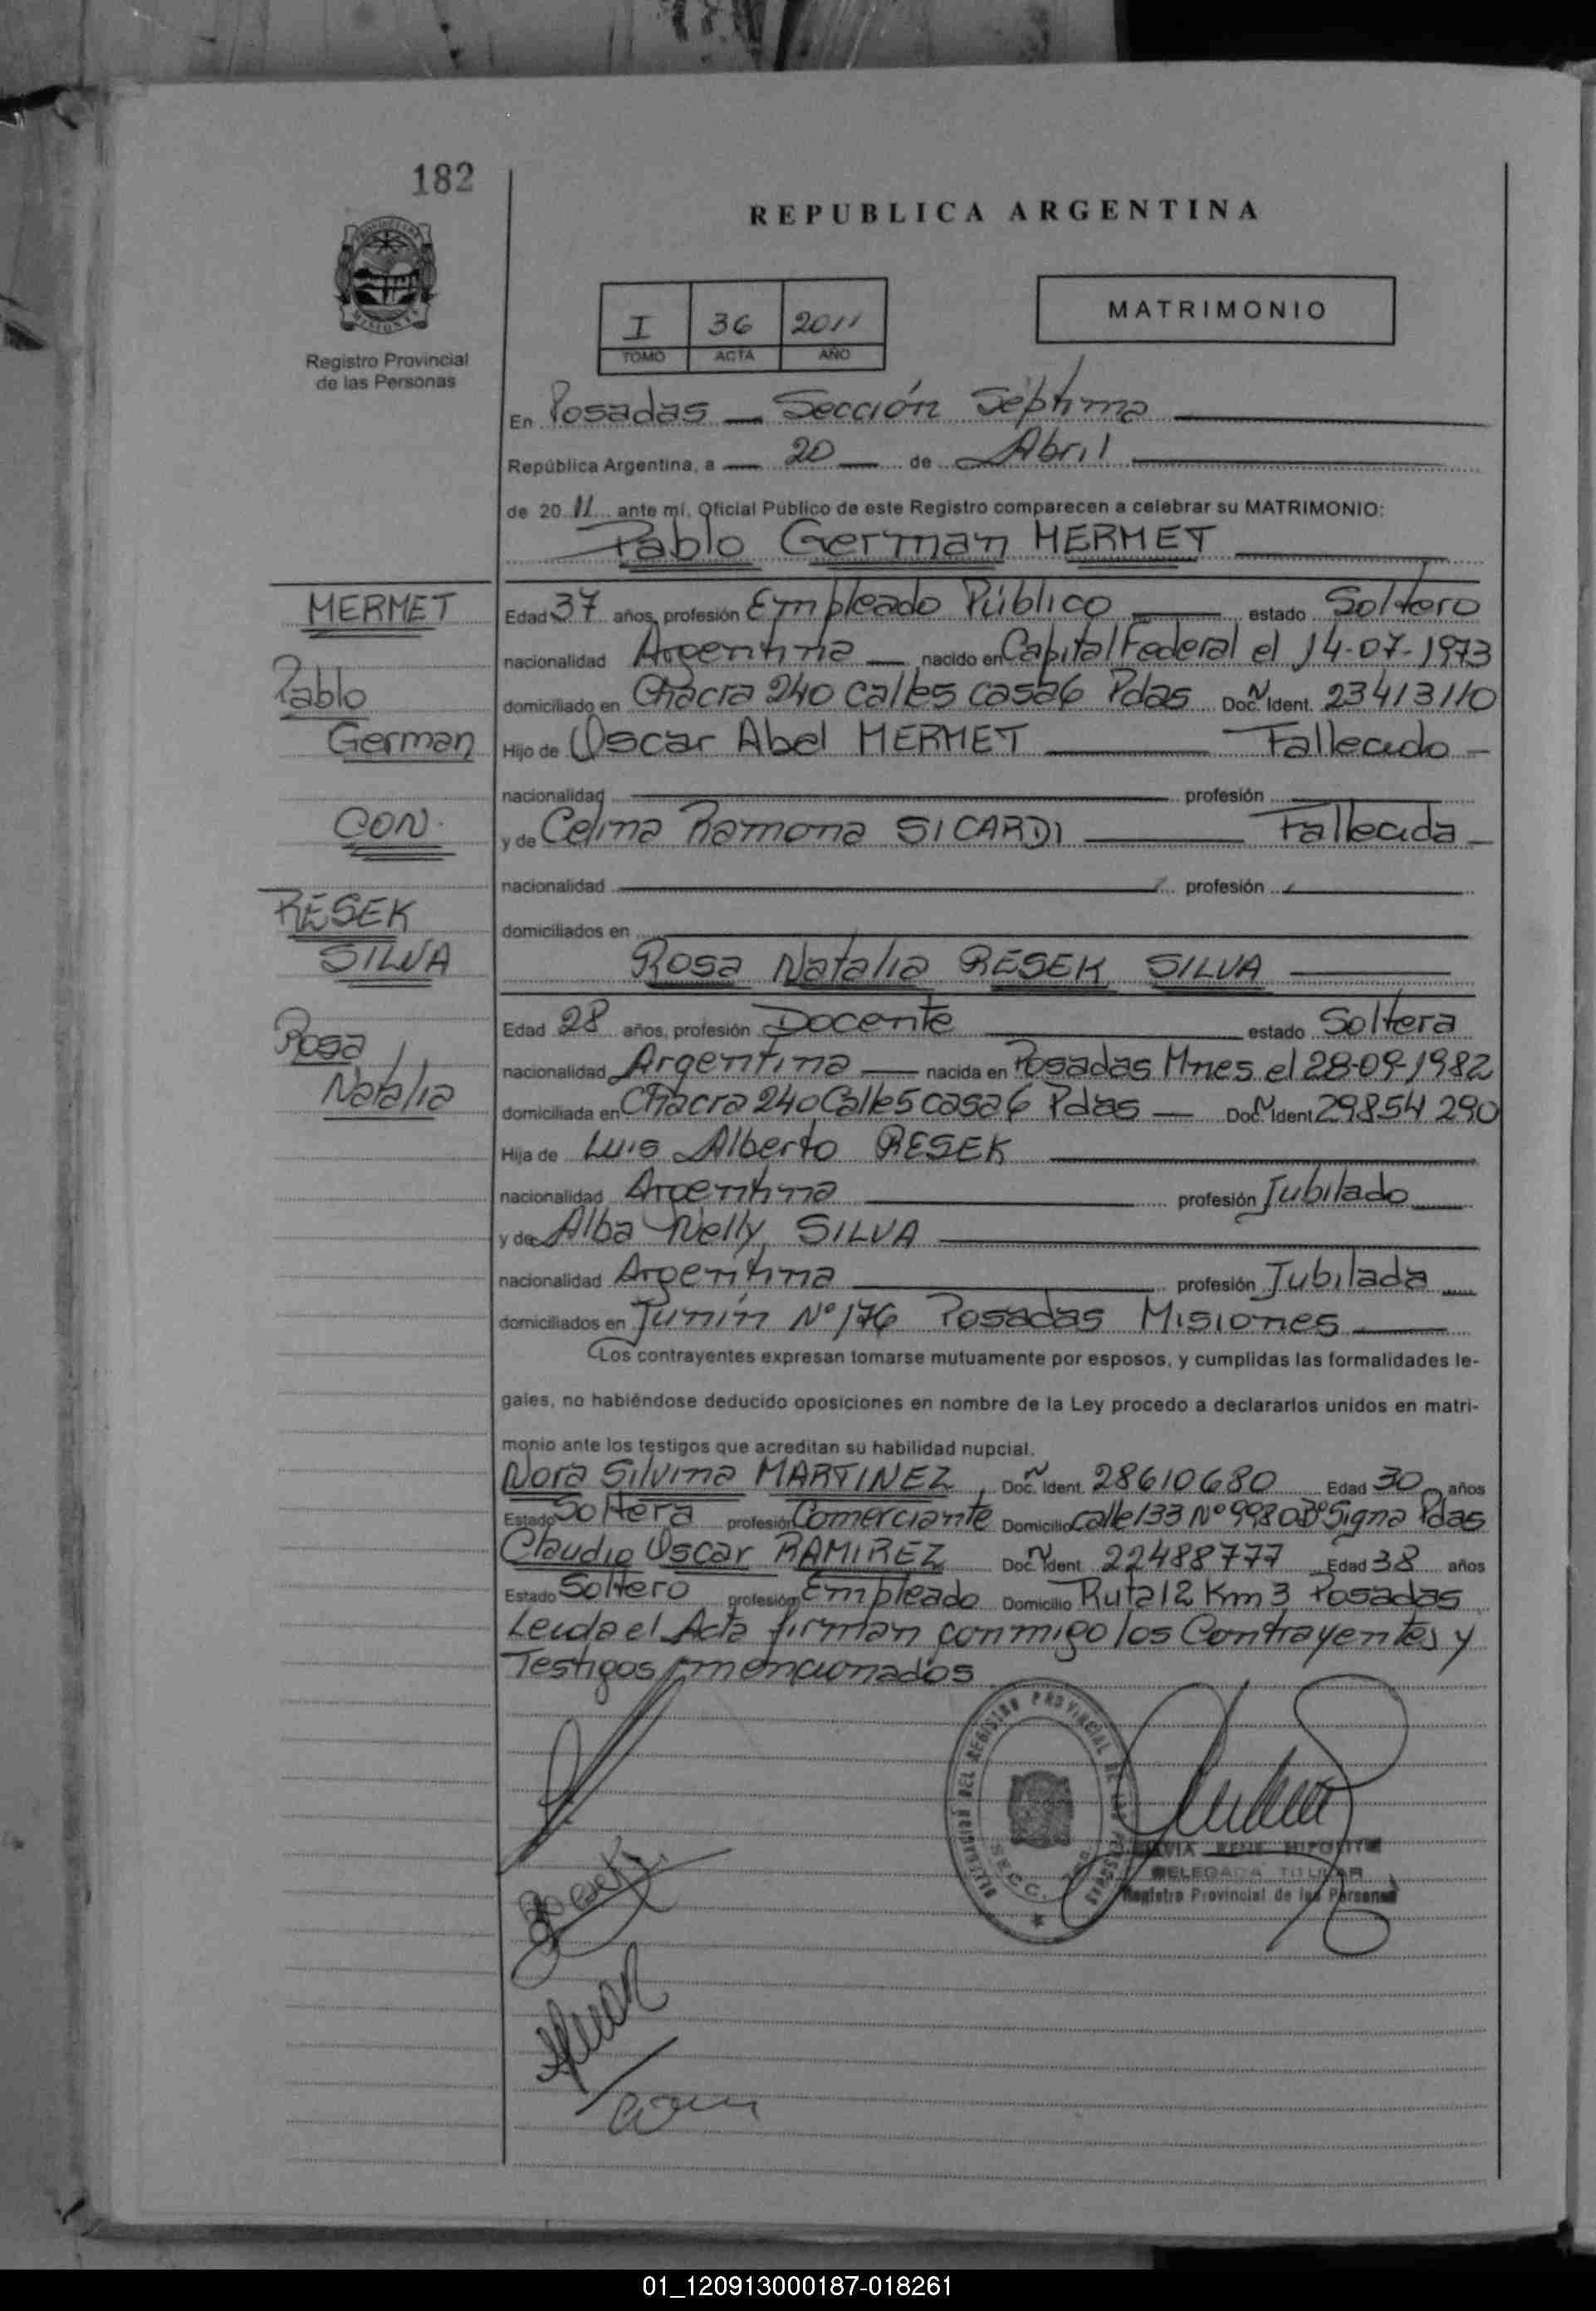 182
REPUBLICA ARGENTINA
MISIONES
Registro Provincial
de las Personas
I 36 2011
TOMO ACTA AÑO
MATRIMONIO
En Posadas — Sección Séptima
República Argentina, a — 20 — de Abril
de 2011 ante mí, Oficial Público de este Registro comparecen a celebrar su MATRIMONIO:
Pablo German MERMET
MERMET
Pablo
German
CON.
RESEK
SILVA
Rosa
Natalia
Edad 37 años, profesión Empleado Público estado Soltero
nacionalidad Argentina — nacido en Capital Federal el 14-07-1973
domiciliado en Chacra 240 calle 5 casa 6 Pdas Doc. Ident. 23413110
Hijo de Oscar Abel MERMET Fallecido -
nacionalidad profesión
y de Celina Ramona SICARDI Fallecida -
nacionalidad profesión
domiciliados en
Rosa Natalia RESEK SILVA
Edad 28 años, profesión Docente estado Soltera
nacionalidad Argentina — nacida en Posadas Mnes el 28-09-1982
domiciliada en Chacra 240 Calle 5 casa 6 Pdas — Doc. Ident 29.854.290
Hija de Luis Alberto RESEK
nacionalidad Argentina profesión Jubilado
y de Alba Nelly SILVA
nacionalidad Argentina profesión Jubilada
domiciliados en Junín Nº 176 Posadas Misiones
Los contrayentes expresan tomarse mutuamente por esposos, y cumplidas las formalidades le-
gales, no habiéndose deducido oposiciones en nombre de la Ley procedo a declararlos unidos en matri-
monio ante los testigos que acreditan su habilidad nupcial.
Nora Silvina MARTINEZ, Doc. Ident. 28610680 Edad 30 años
Estado Soltera profesión Comerciante Domicilio calle 133 Nº 9980 Bº Pdas
Claudio Oscar RAMIREZ Doc. Ident. 22488777 Edad 38 años
Estado Soltero profesión Empleado Domicilio Ruta 12 Km 3 Posadas
Leida el Acta firman conmigo los Contrayentes y
Testigos mencionados
DEL REGISTRO PROVINCIAL DE LAS PERSONAS
SECC. 7ma
RENE HIPOLITO
DELEGADA TITULAR
Registro Provincial de las Personas
01_120913000187-018261